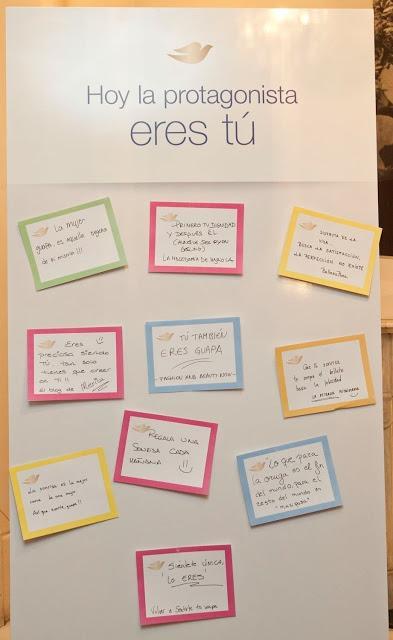 Hoy la protagonista
eres tú
La mujer
guapa, es aquella segura
de si misma !!!
PRIMERO TU DIGNIDAD
Y DESPUÉS ÉL
(AUNQUE SEA RYAN
GOSLING)
LA NECESIDAD DE
DISFRUTA DE LA
VIDA
BUSCA LA SATISFACCIÓN,
LA PERFECCIÓN NO EXISTE
Eres
preciosa siendo
TÚ, tan solo
tienes que creer
en TI !!
El blog de Merita
TÚ TAMBIÉN
ERES GUAPA
- FASHION AND BEAUTY ROOM -
Que tu sonrisa
te compre el billete
hacia la felicidad
LA
REGALA UNA
SONRISA CADA
MAÑANA
La sonrisa es la mejor
de una mujer
Así que sonríe, guapa!!
"Lo que para
la oruga es el fin
del mundo, para el
resto del mundo es
"mariposa"
Siéntete ÚNICA,
LO ERES
Volver a Sentirte tu guapa